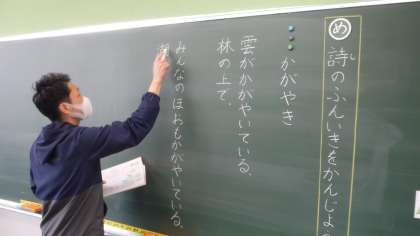 め 詩のふんいきをかんじよ
かがやき
雲がかがやいている、
林の上で。
みんなのほおもかがやいている、